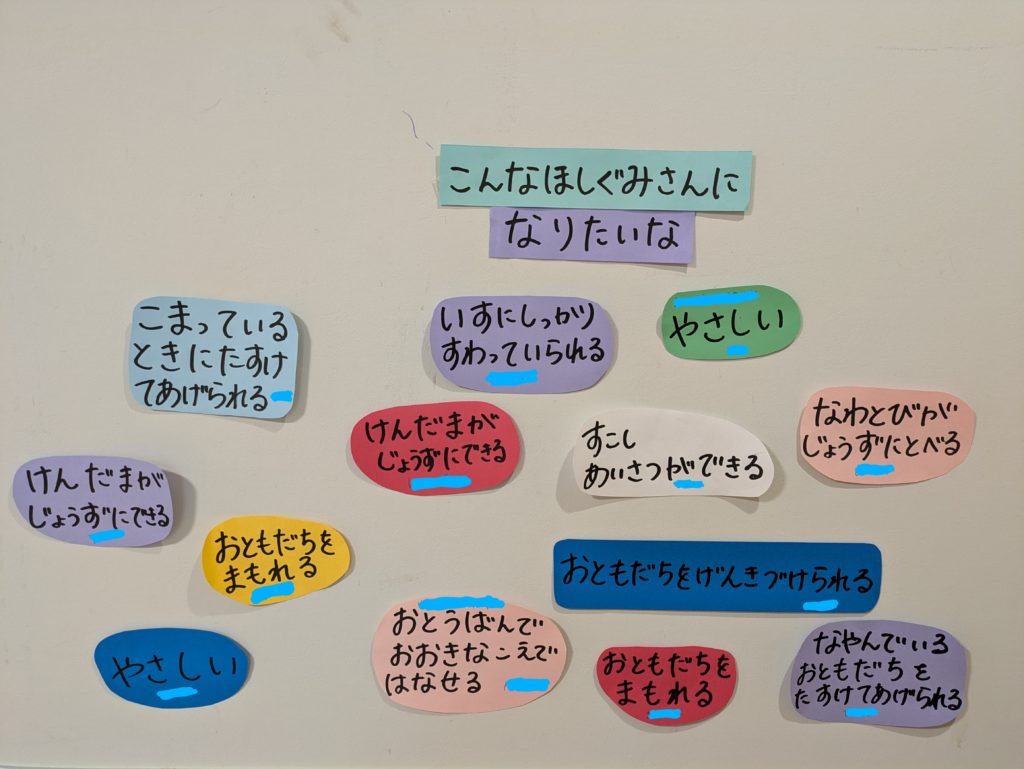 こんなほしぐみさんに
なりたいな
こまっている
ときにたすけ
てあげられる
いすにしっかり
すわっていられる
やさしい
けんだまが
じょうずにできる
すこし
めいさつができる
なわとびが
じょうずにとべる
けんだまが
じょうずにできる
おともだちを
まもれる
おともだちをげんきづけられる
やさしい
おとうばんで
おおきなこえで
はなせる
おともだちを
まもれる
なやんでいる
おともだちを
たすけてあげられる